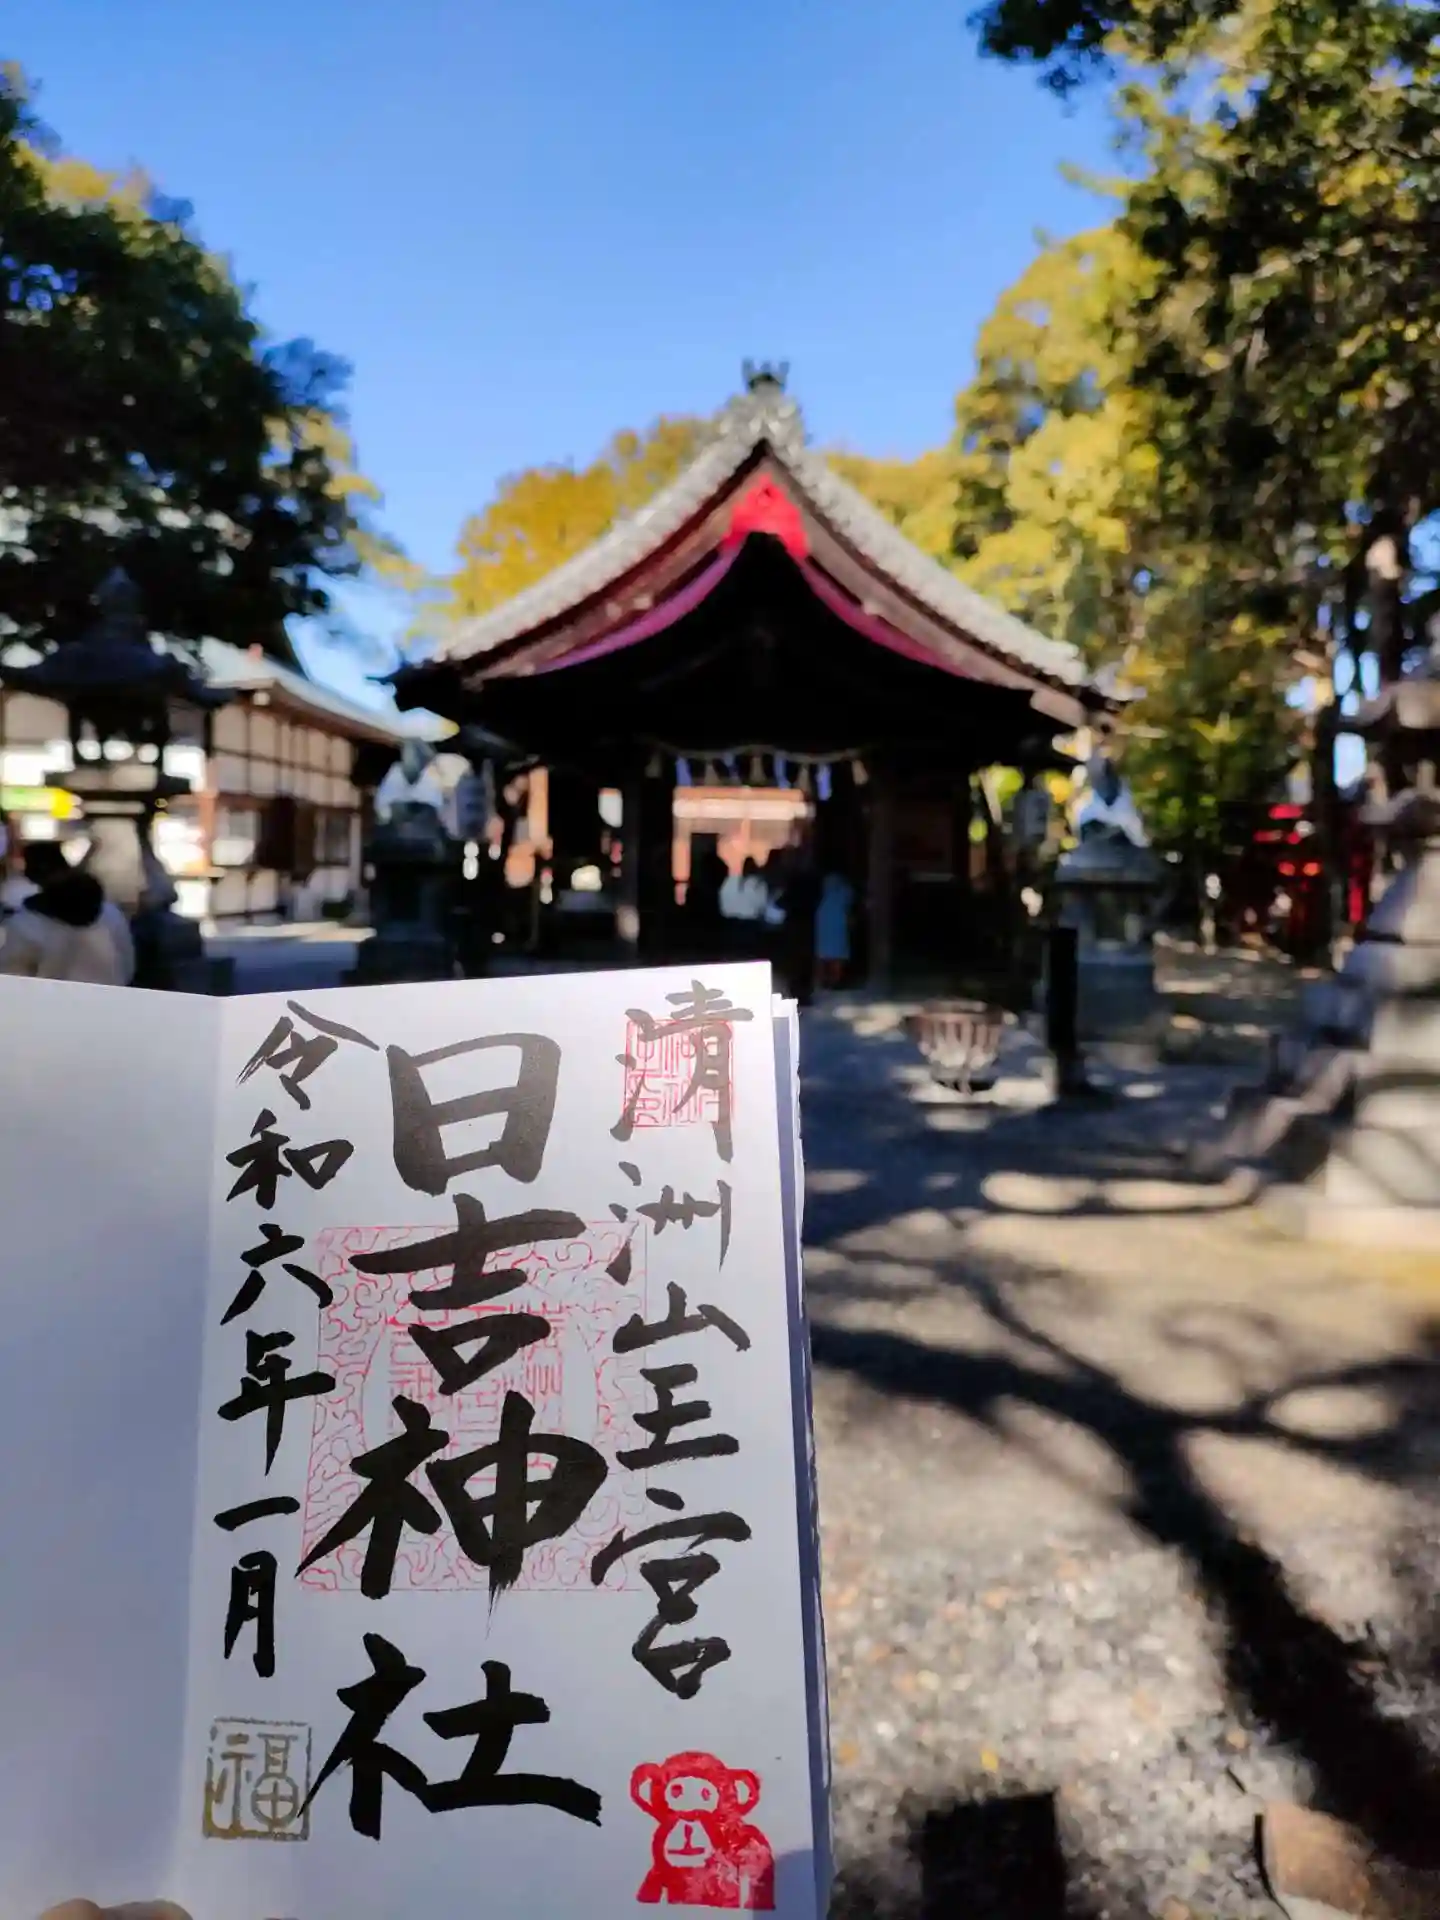 清洲山王宮
日吉神社
令和六年一月
福